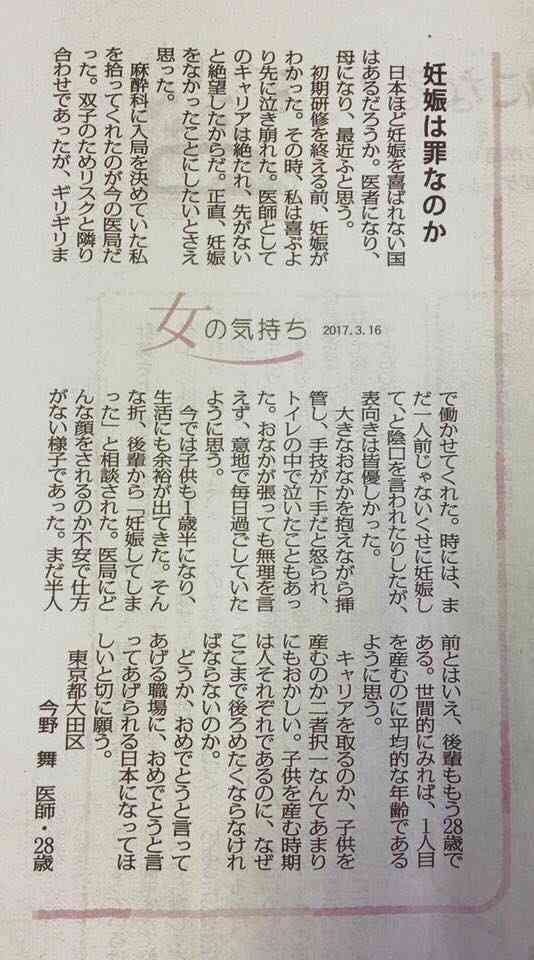 妊娠は罪なのか
日本ほど妊娠を喜ばれない国
はあるだろうか。医者になり、
母になり、最近ふと思う。
初期研修を終える前、妊娠が
わかった。その時、私は喜ぶよ
り先に泣き崩れた。医師として
のキャリアは絶たれ、先がない
と絶望したからだ。正直、妊娠
をなかったことにしたいとさえ
思った。
麻酔科に入局を決めていた私
を拾ってくれたのが今の医局だ
った。双子のためリスクと隣り
合わせであったが、ギリギリま
女の気持ち 2017.3.16
で働かせてくれた。時には、ま
だ一人前じゃないくせに妊娠し
て、と陰口を言われたりしたが、
表向きは皆優しかった。
大きなおなかを抱えながら挿
管し、手技が下手だと怒られ、
トイレの中で泣いたこともあっ
た。おなかが張っても無理を言
えず、意地で毎日過ごしていた
ように思う。
今では子供も1歳半になり、
生活にも余裕が出てきた。そん
な折、後輩から「妊娠してしま
った」と相談された。医局にど
んな顔をされるのか不安で仕方
がない様子であった。まだ半人
前とはいえ、後輩ももう28歳で
ある。世間的にみれば、1人目
を産むのに平均的な年齢である
ように思う。
キャリアを取るのか、子供を
産むのか二者択一なんてあまり
にもおかしい。子供を産む時期
は人それぞれであるのに、なぜ
ここまで後ろめたくならなけれ
ばならないのか。
どうか、おめでとうと言って
あげる職場に、おめでとうと言
ってあげられる日本になってほ
しいと切に願う。
東京都大田区
今野 舞 医師・28歳